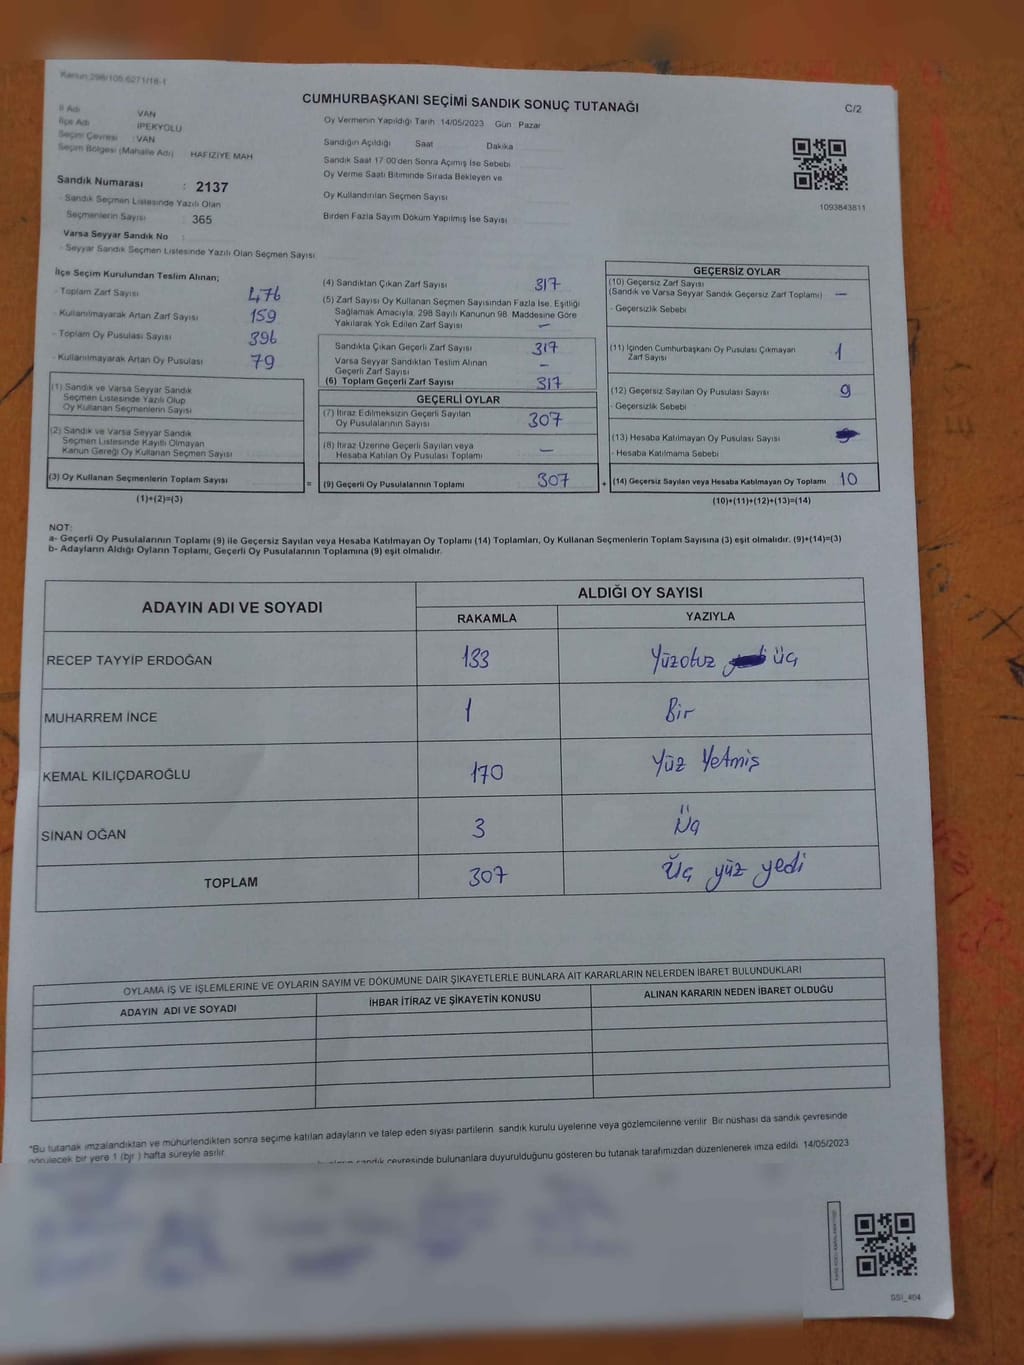 Kanun:298/105;6271/18-1
CUMHURBAŞKANI SEÇİMİ SANDIK SONUÇ TUTANAĞI
C/2
İl Adı VAN
İlçe Adı İPEKYOLU
Seçim Çevresi : VAN
Seçim Bölgesi (Mahalle Adı) HAFIZİYE MAH
Oy Vermenin Yapıldığı Tarih 14/05/2023 Gün : Pazar
Sandığın Açıldığı Saat Dakika
Sandık Saat 17:00'den Sonra Açımış İse Sebebi
Oy Verme Saati Bitiminde Sırada Bekleyen ve
Oy Kullandırılan Seçmen Sayısı
Birden Fazla Sayım Döküm Yapılmış İse Sayısı
1093843811
Sandık Numarası : 2137
Sandık Seçmen Listesinde Yazılı Olan
Seçmenlerin Sayısı : 365
Varsa Seyyar Sandık No :
- Seyyar Sandık Seçmen Listesinde Yazılı Olan Seçmen Sayısı
İlçe Seçim Kurulundan Teslim Alınan;
- Toplam Zarf Sayısı 476
- Kullanılmayarak Artan Zarf Sayısı 159
- Toplam Oy Pusulası Sayısı 396
- Kullanılmayarak Artan Oy Pusulası 79
(1) Sandık ve Varsa Seyyar Sandık
Seçmen Listesinde Yazılı Olup
Oy Kullanan Seçmenlerin Sayısı
(2) Sandık ve Varsa Seyyar Sandık
Seçmen Listesinde Kayıtlı Olmayan
Kanun Gereği Oy Kullanan Seçmen Sayısı
(3) Oy Kullanan Seçmenlerin Toplam Sayısı =
(1)+(2)=(3)
(4) Sandıktan Çıkan Zarf Sayısı 317
(5) Zarf Sayısı Oy Kullanan Seçmen Sayısından Fazla İse, Eşitliği
Sağlamak Amacıyla, 298 Sayılı Kanunun 98. Maddesine Göre
Yakılarak Yok Edilen Zarf Sayısı —
Sandıkta Çıkan Geçerli Zarf Sayısı 317
Varsa Seyyar Sandıktan Teslim Alınan
Geçerli Zarf Sayısı —
(6) Toplam Geçerli Zarf Sayısı 317
GEÇERLİ OYLAR
(7) İtiraz Edilmeksizin Geçerli Sayılan
Oy Pusulalarının Sayısı 307
(8) İtiraz Üzerine Geçerli Sayılan veya
Hesaba Katılan Oy Pusulası Toplamı —
(9) Geçerli Oy Pusulalarının Toplamı 307 +
GEÇERSİZ OYLAR
(10) Geçersiz Zarf Sayısı
(Sandık ve Varsa Seyyar Sandık Geçersiz Zarf Toplamı) —
- Geçersizlik Sebebi
(11) İçinden Cumhurbaşkanı Oy Pusulası Çıkmayan
Zarf Sayısı 1
(12) Geçersiz Sayılan Oy Pusulası Sayısı 9
- Geçersizlik Sebebi
(13) Hesaba Katılmayan Oy Pusulası Sayısı
- Hesaba Katılmama Sebebi
(14) Geçersiz Sayılan veya Hesaba Katılmayan Oy Toplamı 10
(10)+(11)+(12)+(13)=(14)
NOT:
a- Geçerli Oy Pusulalarının Toplamı (9) ile Geçersiz Sayılan veya Hesaba Katılmayan Oy Toplamı (14) Toplamları, Oy Kullanan Seçmenlerin Toplam Sayısına (3) eşit olmalıdır. (9)+(14)=(3)
b- Adayların Aldığı Oyların Toplamı, Geçerli Oy Pusulalarının Toplamına (9) eşit olmalıdır.
ADAYIN ADI VE SOYADI
ALDIĞI OY SAYISI
RAKAMLA YAZIYLA
RECEP TAYYİP ERDOĞAN 133 Yüzotuz üç
MUHARREM İNCE 1 Bir
KEMAL KILIÇDAROĞLU 170 Yüz Yetmiş
SİNAN OĞAN 3 Üç
TOPLAM 307 Üç yüz yedi
OYLAMA İŞ VE İŞLEMLERİNE VE OYLARIN SAYIM VE DÖKÜMÜNE DAİR ŞİKAYETLERLE BUNLARA AİT KARARLARIN NELERDEN İBARET BULUNDUKLARI
ADAYIN ADI VE SOYADI İHBAR İTİRAZ VE ŞİKAYETİN KONUSU ALINAN KARARIN NEDEN İBARET OLDUĞU
*Bu tutanak imzalandıktan ve mühürlendikten sonra seçime katılan adayların ve talep eden siyasi partilerin sandık kurulu üyelerine veya gözlemcilerine verilir. Bir nüshası da sandık çevresinde
görülecek bir yere 1 (bir ) hafta süreyle asılır.
sandık çevresinde bulunanlara duyurulduğunu gösteren bu tutanak tarafımızdan düzenlenerek imza edildi. 14/05/2023
SSI_404